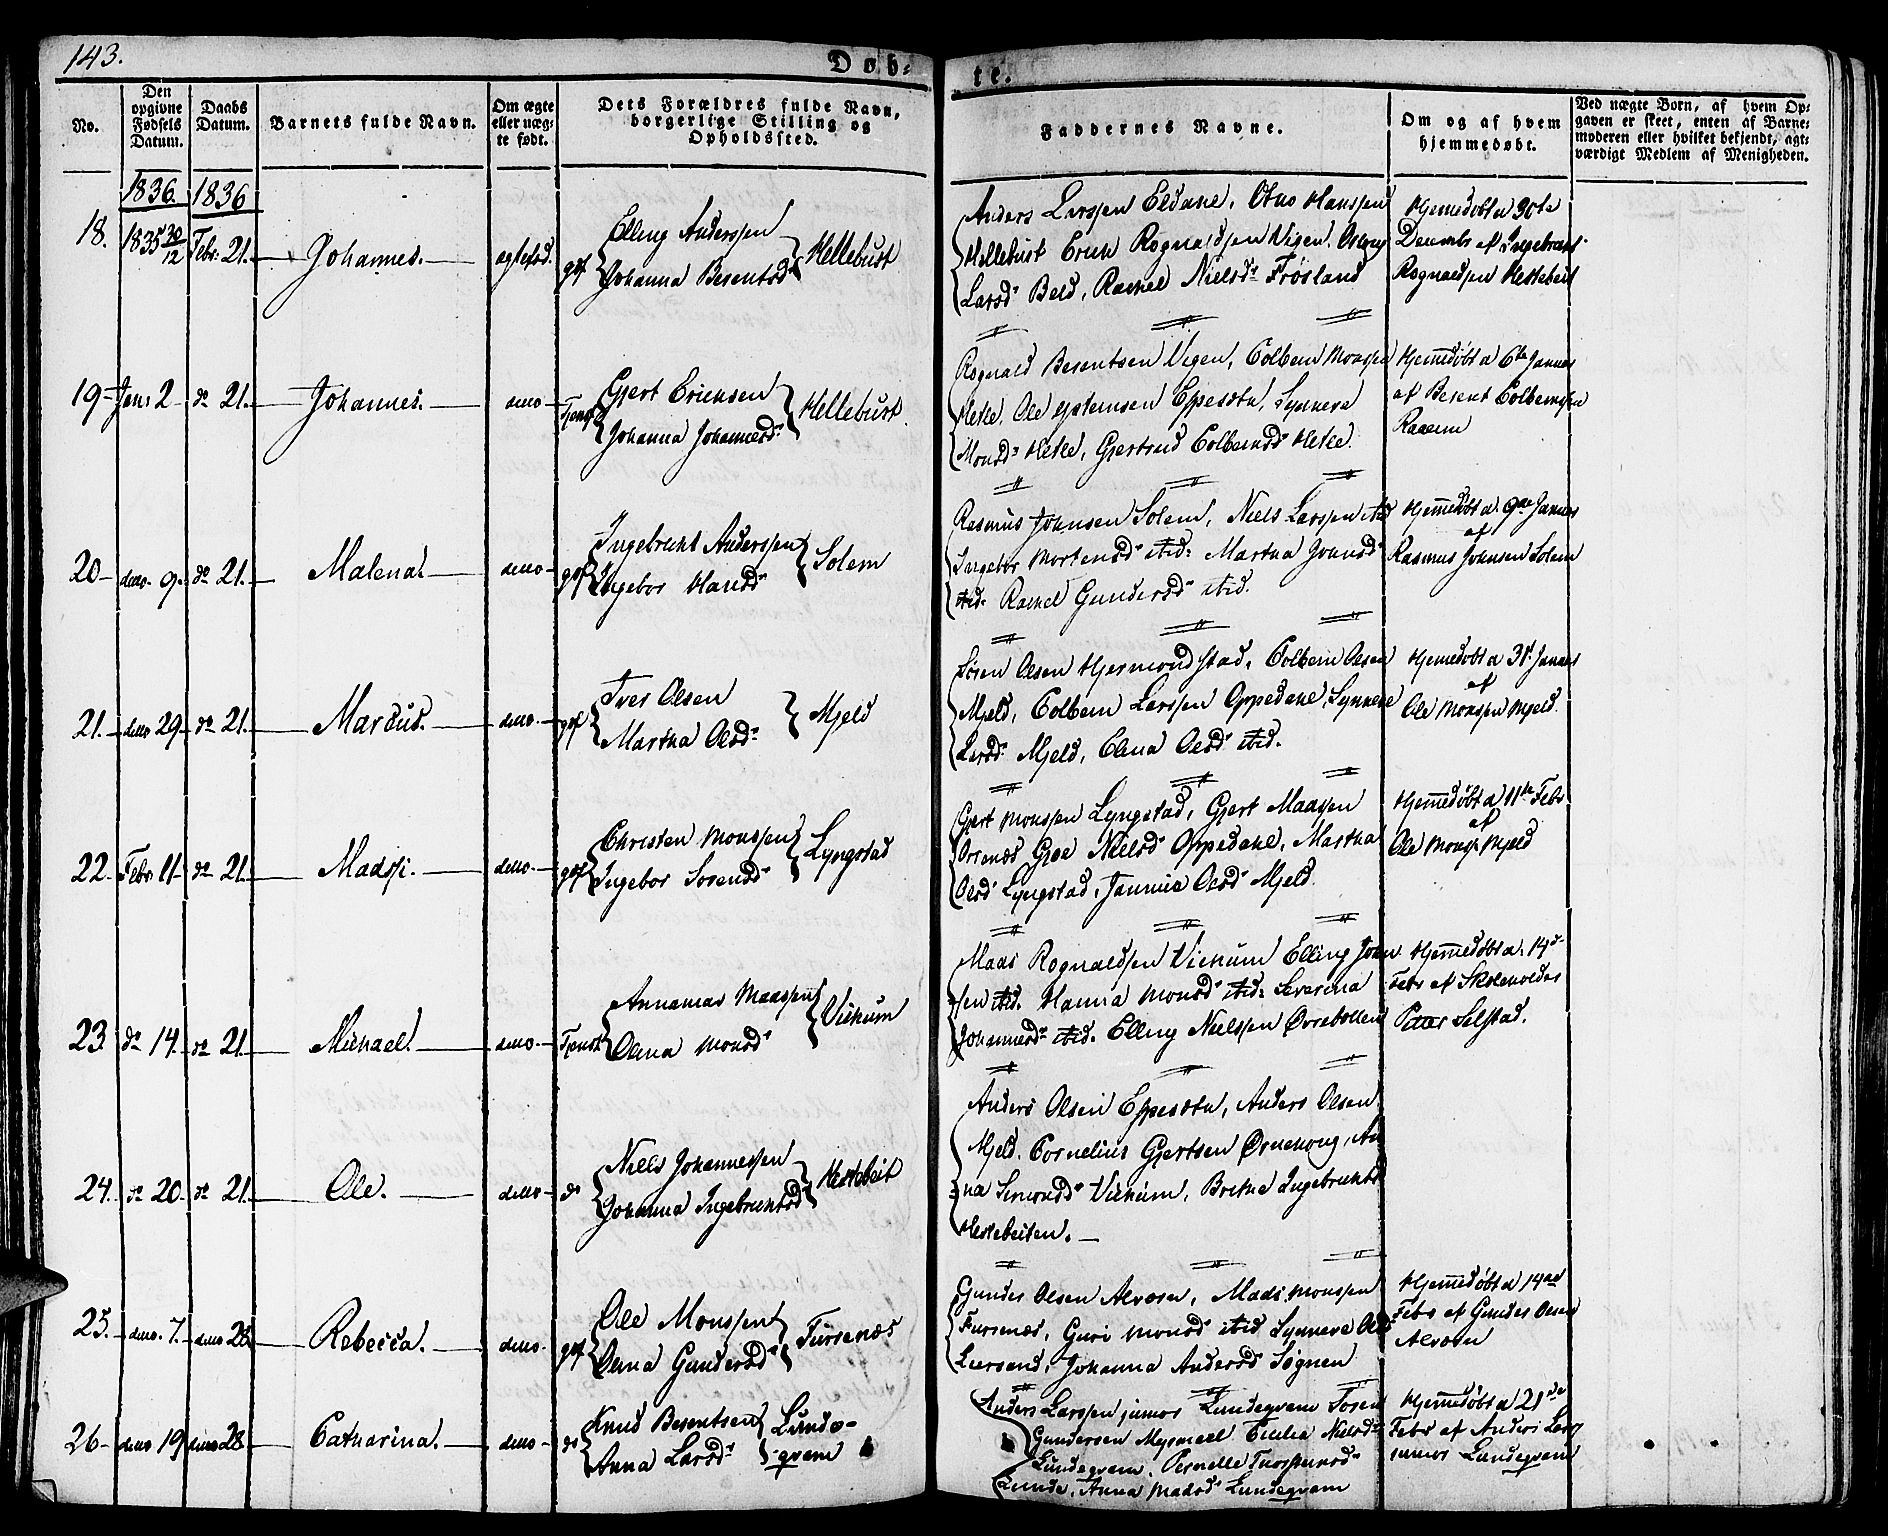 143.
Døb-
te.
No.
Den opgivne Fødsels Datum.
Daabs Datum.
Barnets fulde Navn.
Om ægte eller uægte født.
Dets Forældres fulde Navn, borgerlige Stilling og Opholdssted.
Faddernes Navne.
Om og af hvem hjemmedøbt.
Ved uægte Børn, af hvem Opgaven er skeet, enten af Barnemoderen eller hvilket bekjendt, agtværdigt Medlem af Menigheden.
1836. 1836
18. 1835 30/12 Febr. 21. Johannes. ægtefød. gift
Elling Anderssen
Johanna Besentsd.
Hellebust
Anders Larssen Eldahl, Hanssen
Hellebust Erich Rognaldsen Vigen,
Larsd. Beld, Rachel Nielsd. Frösland
Hjemedöbt d 30te
Decembr af Ingebrigt
Rognaldsen Hestebeit
19 Jan: 2 do 21. Johannes. ditto Tjenst
Gjert Erichsen
Johanna Johannesd.
Hellebust.
Rognald Besentsen Vigen, Colbein Monssen
Hetle, Ole Espesæth, Synneve
Monsd. Hetle, Gjertrud Colbeinsd. Hetle.
Hjemedöbt d 6te Januar
af Besent Colbeinsen
20 ditto 9. do 21. Malena. ditto gift
Ingebricht Anderssen
Ingebor Hansd.
Solem
Rasmus Johnsen Solem, Niels Larssen ibid
Ingebor Mortensd. ibid. Martha Johnsd.
ibid. Rachel Gundersd. ibid.
Hjemedöbt d. 9de Januar
af
Rasmus Johnsen Solem
21. ditto 29 do 21. Marcus. ditto gift
Iver Olsen
Martha Olsd.
Mjeld
Sören Olsen Hjermondstad, Colbein Olsen
Mjeld, Colbein Larssen Oppedahl, Synneve
Larsd. Mjeld, Elena Olsd. ibid.
Hjemedöbt d 31. Januar
af
Ole Monssen Mjeld.
22 Febr 11 do 21. Madssi. ditto gift
Christen Monssen
Ingebor Sörensd.
Lyngstad
Gjert Monssen Lyngstad, Gjert Maassen
Orsenæs Groe Nielsd. Oppedahl, Martha
Olsd. Lyngstad, Jannica Olsd. Mjeld.
Hjemedöbt d 11te Febr
af
Ole Mons. Mjeld
23 do 14. do 21. Michael. ditto Tjenst
Annanias Maassen
Olina Monsd.
Vichum
Maas Rognaldsen Vichum Elling John
sen ibid. Hanna Monsd. ibid. Severina
Johannesd. ibid. Elling Nielssen Övrebotten
Hjemedöbt d. 14d.
Febr af Skoleholder
Peter Selstad.
24. do 20 do 21. Ole. ditto do
Niels Johannessen
Johanna Ingebrichtsd.
Hestebeit
Anders Olsen Espesæth, Anders Olsen
Mjeld, Cornelius Gjertsen Örnehoug, An
na Simonsd. Vichum, Brithe Ingebrichtsd
Hestebeiten.
25. ditto 7. ditto 28 Rebecca. ditto gift
Ole Monssen
Anna Gundersd.
Fursenæs
Gunder Olsen Alværa, Mads Monssen
Fursenæs, Guri Monsd. ibid Synneve Olsd
Leersand, Johanna Andersd. Sögnen
Hjemedöbt d 14de
Febr af Gunder Olsen
Alværa
26 ditto 19 ditto 28 Catharina. ditto do
Knud Besentsen
Anna Larsd.
Lunde-
qvam
Anders Larssen junior Lundeqvam
Gundersen Cicilia Nielsd.
Lundeqvam, Pernelle Thorstensd.
Lunde, Anna Madsd. Lundeqvam
Hjemedöbt d 21de
Febr af Anders Lars
junior Lundeqvam